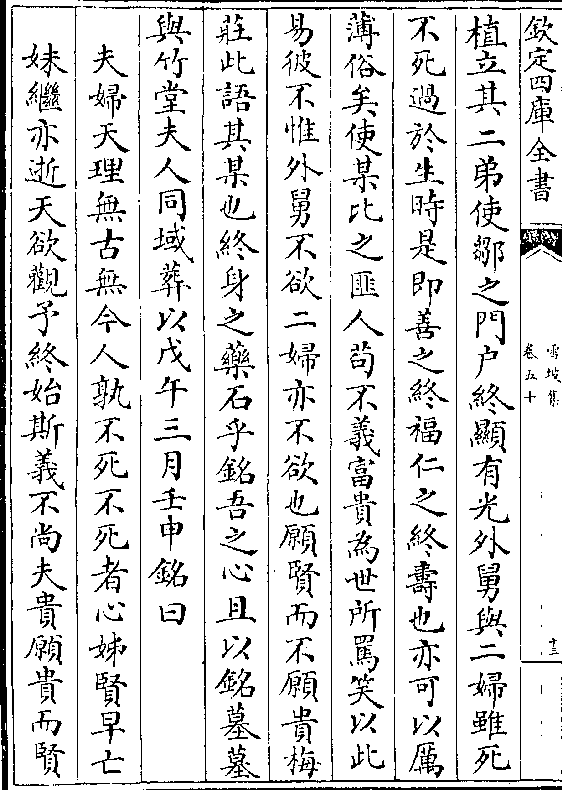 欽定四庫全書
雪坡集
卷五十
十三
植立其二弟使鄒之門户終顯有光外舅與二婦雖死
不死過於生時是即善之終福仁之終壽也亦可以厲
薄俗矣使某比之匪人苟不義富貴為世所罵笑以此
易彼不惟外舅不欲二婦亦不欲也願賢而不願貴梅
莊此語其某也終身之藥石乎銘吾之心且以銘墓墓
與竹堂夫人同域葬以戊午三月壬申銘曰
夫婦天理無古無今人孰不死不死者心姊賢早亡
妹繼亦逝天欲觀予終始斯義不尚夫貴願貴而賢